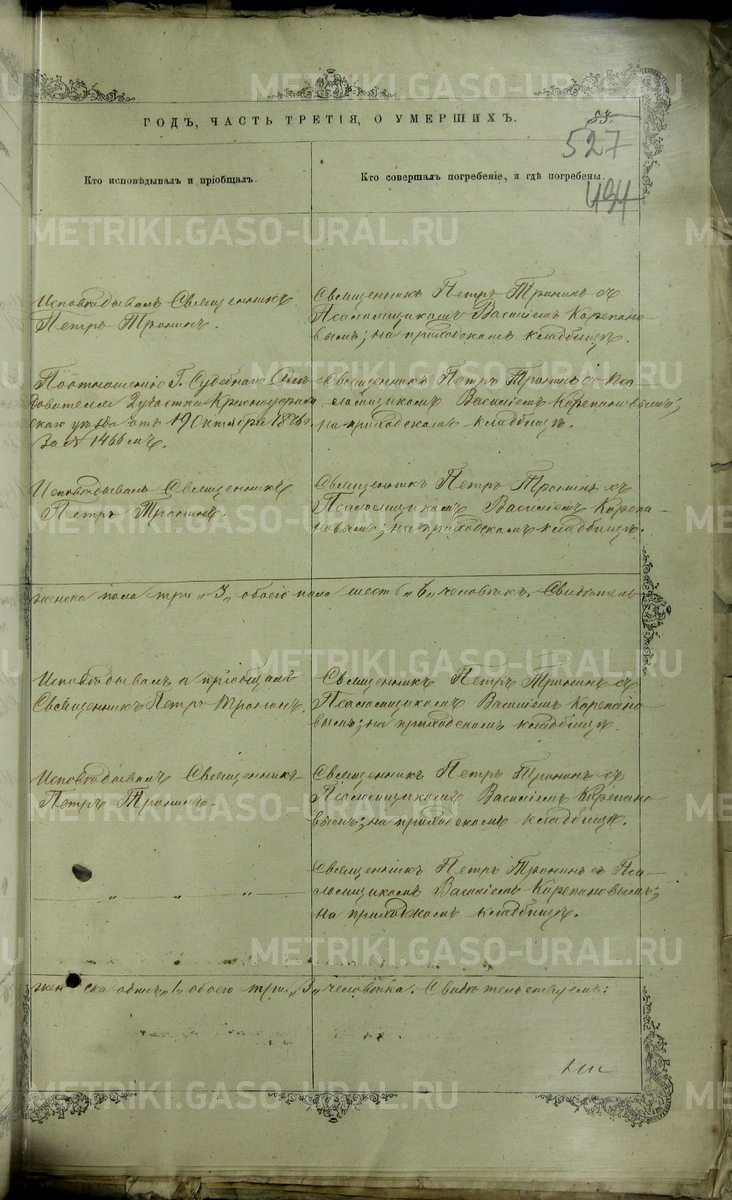 ГОДЪ, ЧАСТЬ ТРЕТІЯ, О УМЕРШИХЪ.
527
494
Кто исповѣдывалъ и пріобщалъ.
Кто совершалъ погребеніе, и гдѣ погребены.
Исповѣдывалъ Священникъ
Петръ Тронинъ.
Священникъ Петръ Тронинъ съ
Псаломщикомъ Василіемъ Карепано
вымъ; на приходскомъ кладбищѣ.
По отношенію Г. Судебнаго Слѣ
дователя 2 участка Красноуфим
скаго уѣзда отъ 19 Октября
за № 1466мъ.
Священникъ Петръ Тронинъ съ Пса-
ломщикомъ Василіемъ Карепановымъ;
на приходскомъ кладбищѣ.
Исповѣдывалъ Священникъ
Петръ Тронинъ.
Священникъ Петръ Тронинъ съ
Псаломщикомъ Василіемъ Карепа-
новымъ; на приходскомъ кладбищѣ.
женска пола три „3„ обоего пола шесть „6„ человѣкъ. Свидѣтель
Исповѣдывалъ и пріобщалъ
Священникъ Петръ Тронинъ.
Священникъ Петръ Тронинъ съ
Псаломщикомъ Василіемъ Карепано
вымъ; на приходскомъ кладбищѣ.
Исповѣдывалъ Священникъ
Петръ Тронинъ.
Священникъ Петръ Тронинъ съ
Псаломщикомъ Василіемъ Карепано
вымъ; на приходскомъ кладбищѣ.
„ „ „
Священникъ Петръ Тронинъ съ Пса-
ломщикомъ Василіемъ Карепановымъ;
на приходскомъ кладбищѣ.
женска одна „1„ обоего три „3„ человѣка. Свидѣтельствуемъ:
METRIKI.GASO-URAL.RU